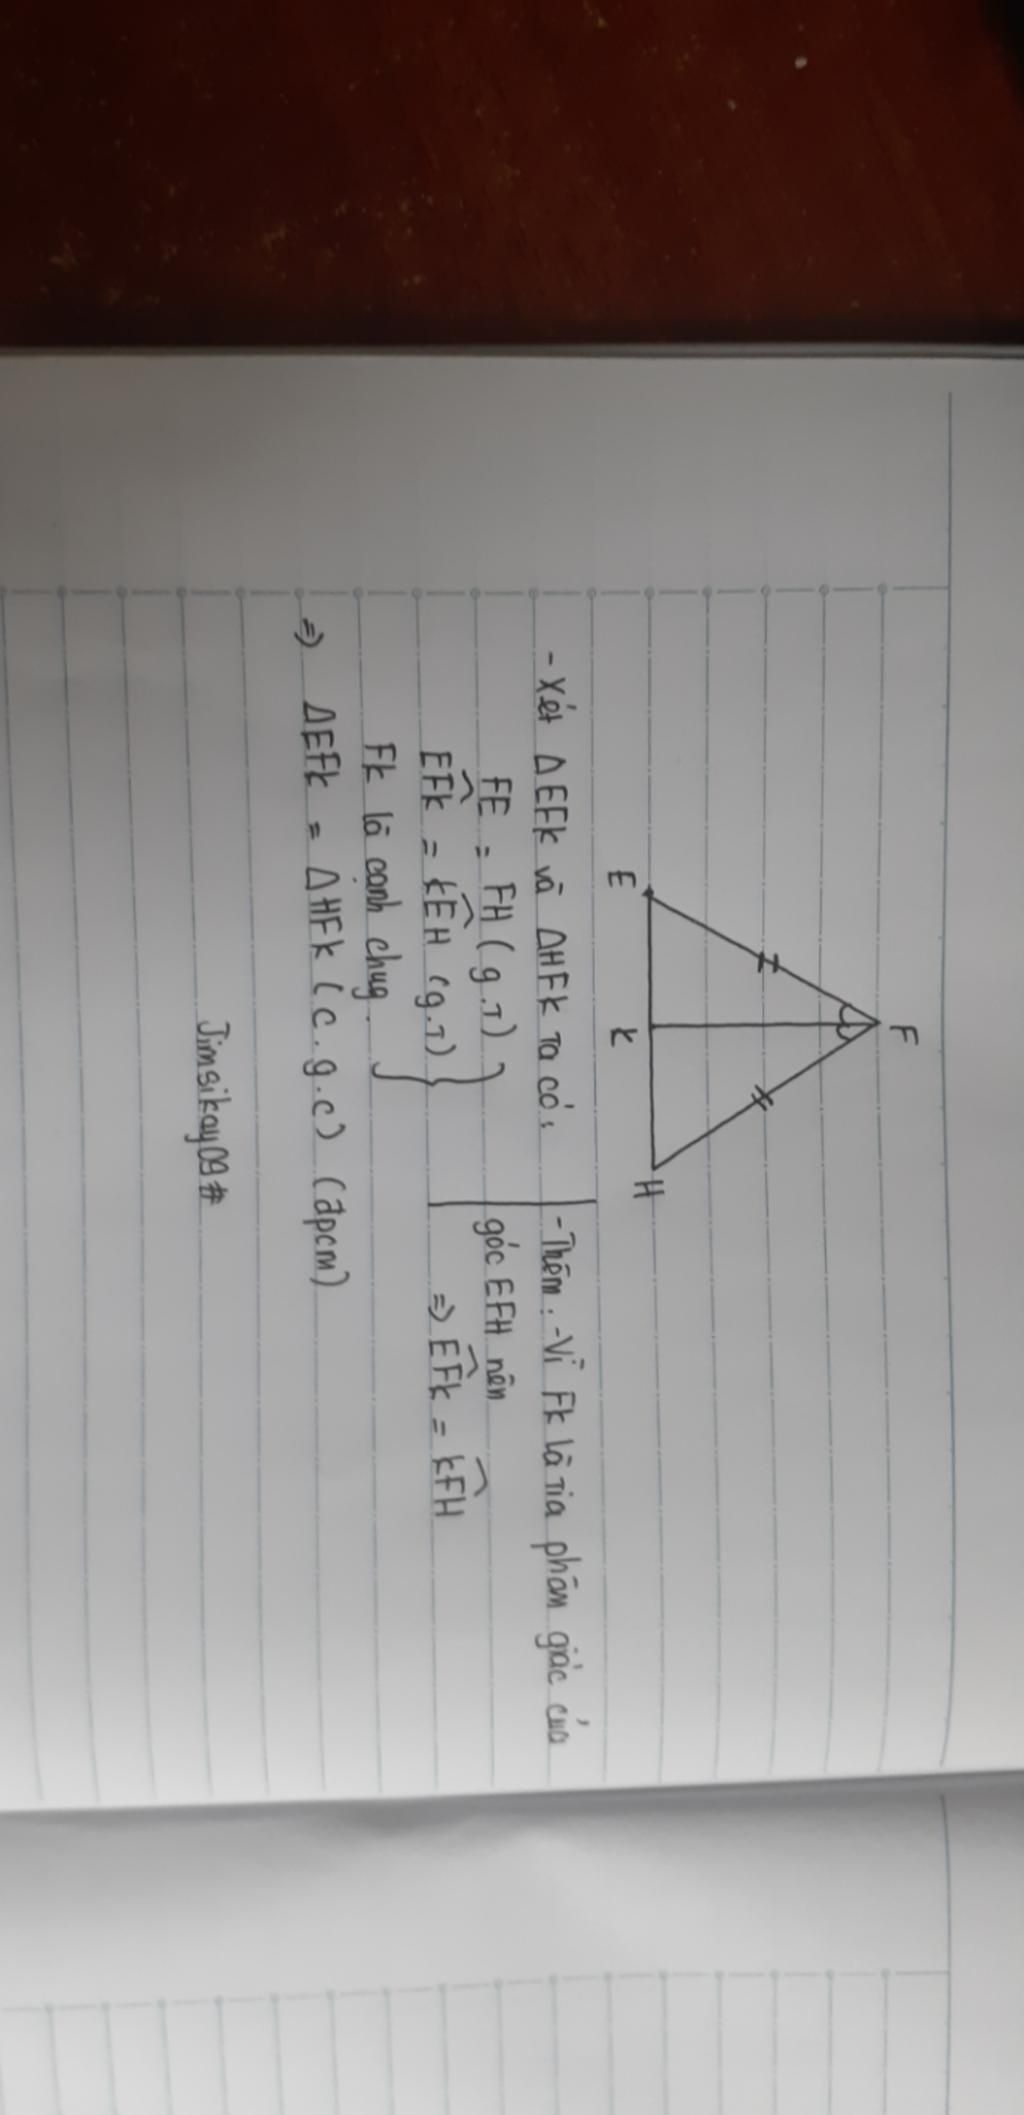 F
E
K
H
- Xét ΔEFK và ΔHFK ta có:
FE = FH (g.T)
EFK̂ = KEĤ (g.T)
FK là cạnh chug.
=> ΔEFK = ΔHFK (c.g.c) (đpcm)
- Thêm: - Vì FK là tia phân giác của
góc EFH nên
=> EFK̂ = KFĤ
Jimsikay09#